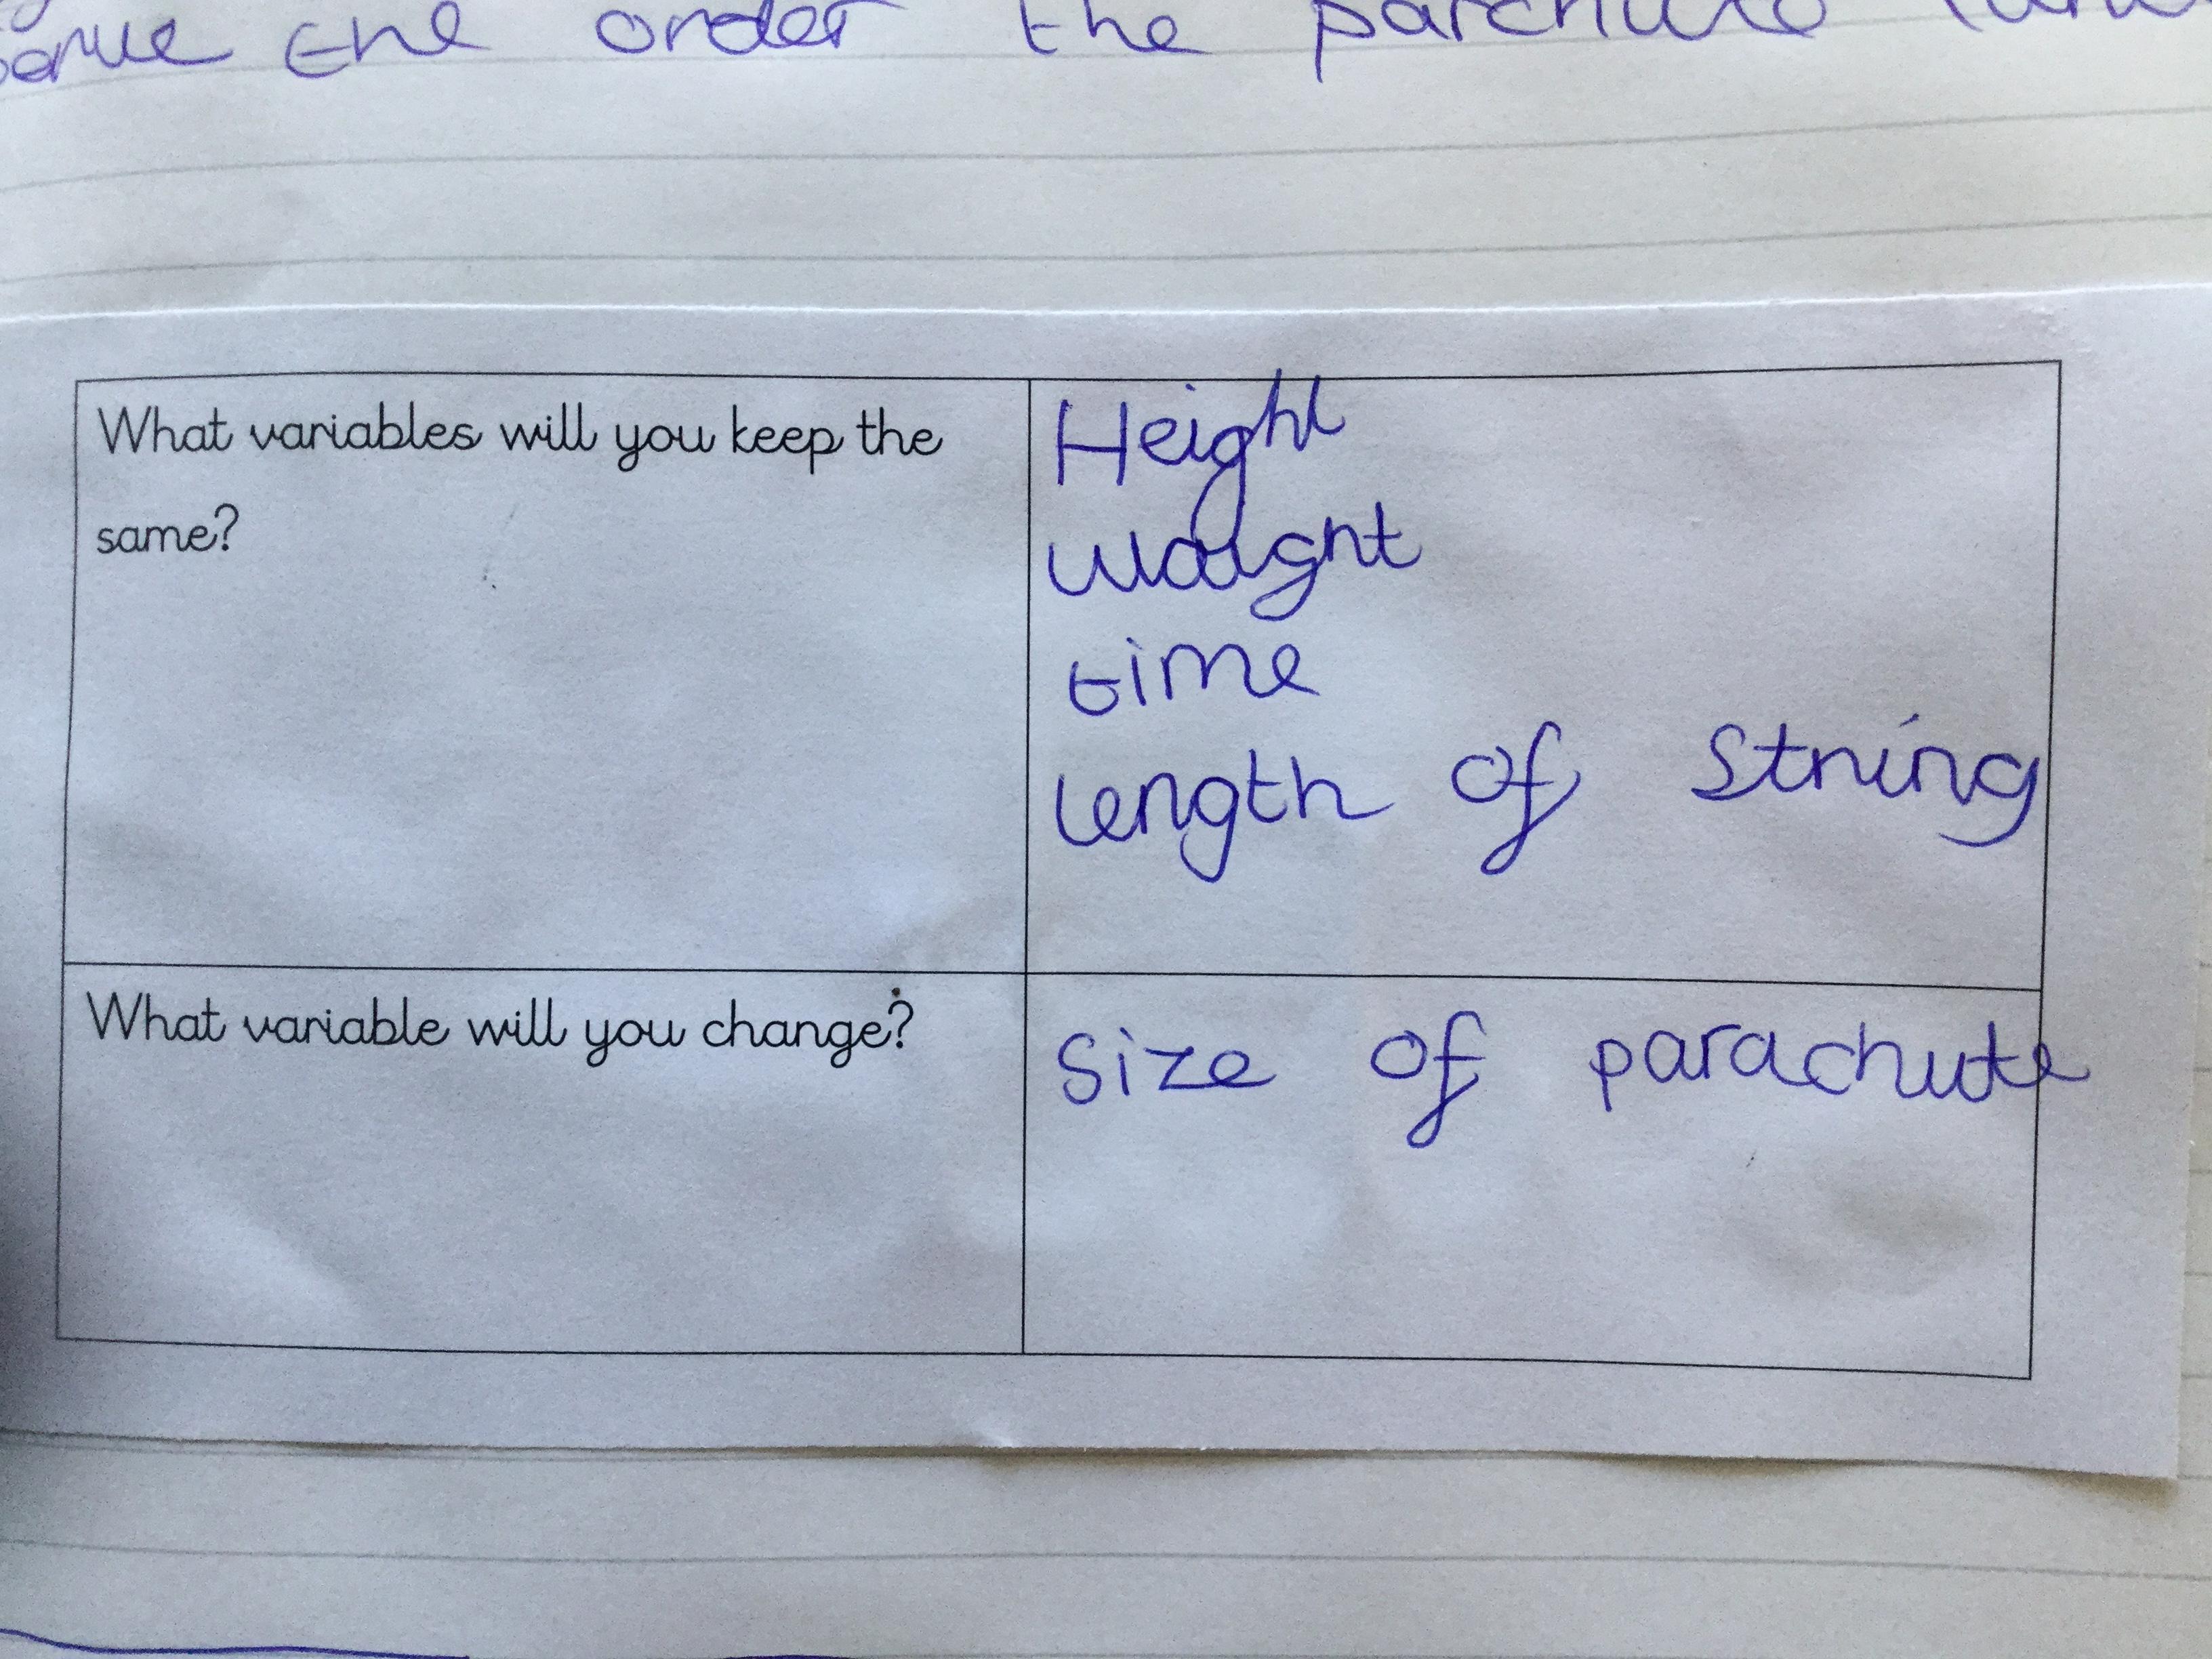 the order the
What variables will you keep the
same?
Height
waight
time
length of string
What variable will you change?
Size of parachute